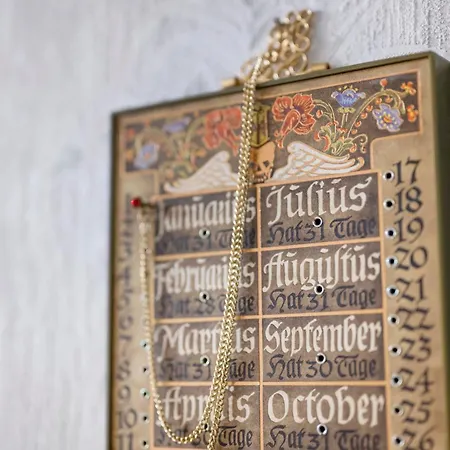 Januarius
Hat 31 Tage
Julius
Hat 31 Tage
Februarius
Hat 28 Tage
Augustus
Hat 31 Tage
Martius
Hat 31 Tage
September
Hat 30 Tage
Aprilis
Hat 30 Tage
October
Hat 31 Tage
7
8
9
10
11
17
18
19
20
21
22
23
24
25
26